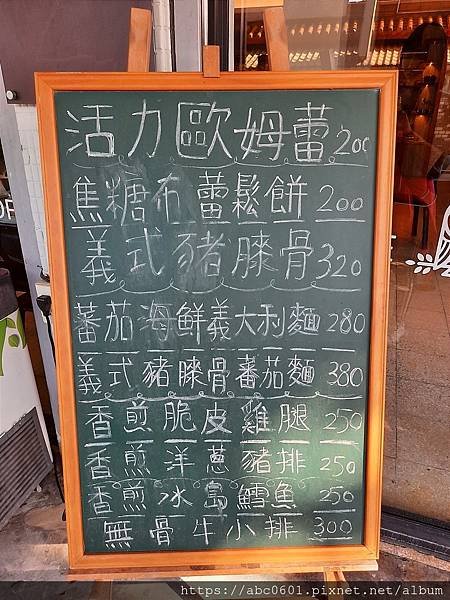 活力歐姆蕾200
焦糖布蕾鬆餅200
義式豬膝骨320
蕃茄海鮮義大利麵280
義式豬膝骨蕃茄麵380
香煎脆皮雞腿250
香煎洋蔥豬排250
香煎冰島鱈魚250
無骨牛小排300
https://abc0601.pixnet.net/album